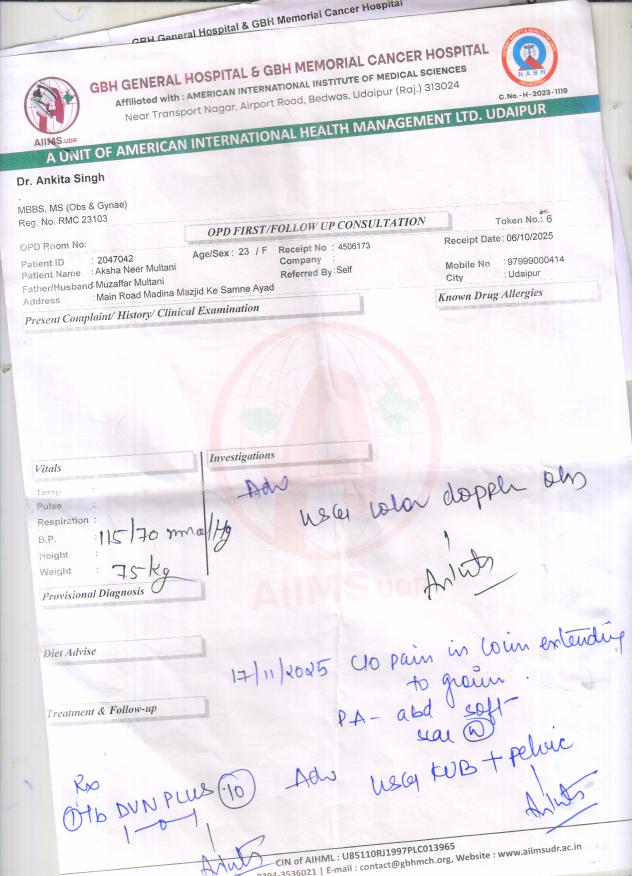 GBH General Hospital & GBH Memorial Cancer Hospital
GBH GENERAL HOSPITAL & GBH MEMORIAL CANCER HOSPITAL
Affiliated with : AMERICAN INTERNATIONAL INSTITUTE OF MEDICAL SCIENCES
Near Transport Nagar, Airport Road, Bedwas, Udaipur (Raj.) 313024
NABH
C.No.-H-2023-1119
AIIMS.UDR
A UNIT OF AMERICAN INTERNATIONAL HEALTH MANAGEMENT LTD. UDAIPUR
Dr. Ankita Singh
MBBS, MS (Obs & Gynae)
Reg. No. RMC 23103
OPD FIRST/FOLLOW UP CONSULTATION
Token No.: 6
OPD Room No:
Receipt Date: 06/10/2025
Patient ID : 2047042
Age/Sex : 23 / F
Receipt No : 4506173
Patient Name : Aksha Neer Multani
Company :
Mobile No : 97999000414
Father/Husband : Muzaffar Multani
Referred By : Self
City : Udaipur
Address : Main Road Madina Mazjid Ke Samne Ayad
Present Complaint/ History/ Clinical Examination
Known Drug Allergies
Vitals
Investigations
Temp :
Adv
Pulse :
USG color doppler obs
Respiration :
B.P. : 115/70 mmol/Hg
Height :
Weight : 75 kg
Ankita
AIIMS.UDR
Provisional Diagnosis
Diet Advise
17/11/2025 C/o pain in loin extending
to groin.
Treatment & Follow-up
PA - abd soft
scar (N)
Rx
Adv USG KUB + pelvic
① Tb DVN PLUS (10)
1-0-1
Ankita
Ankita
CIN of AIHML : U85110RJ1997PLC013965
0294-3536021 | E-mail : contact@gbhmch.org, Website : www.aiimsudr.ac.in